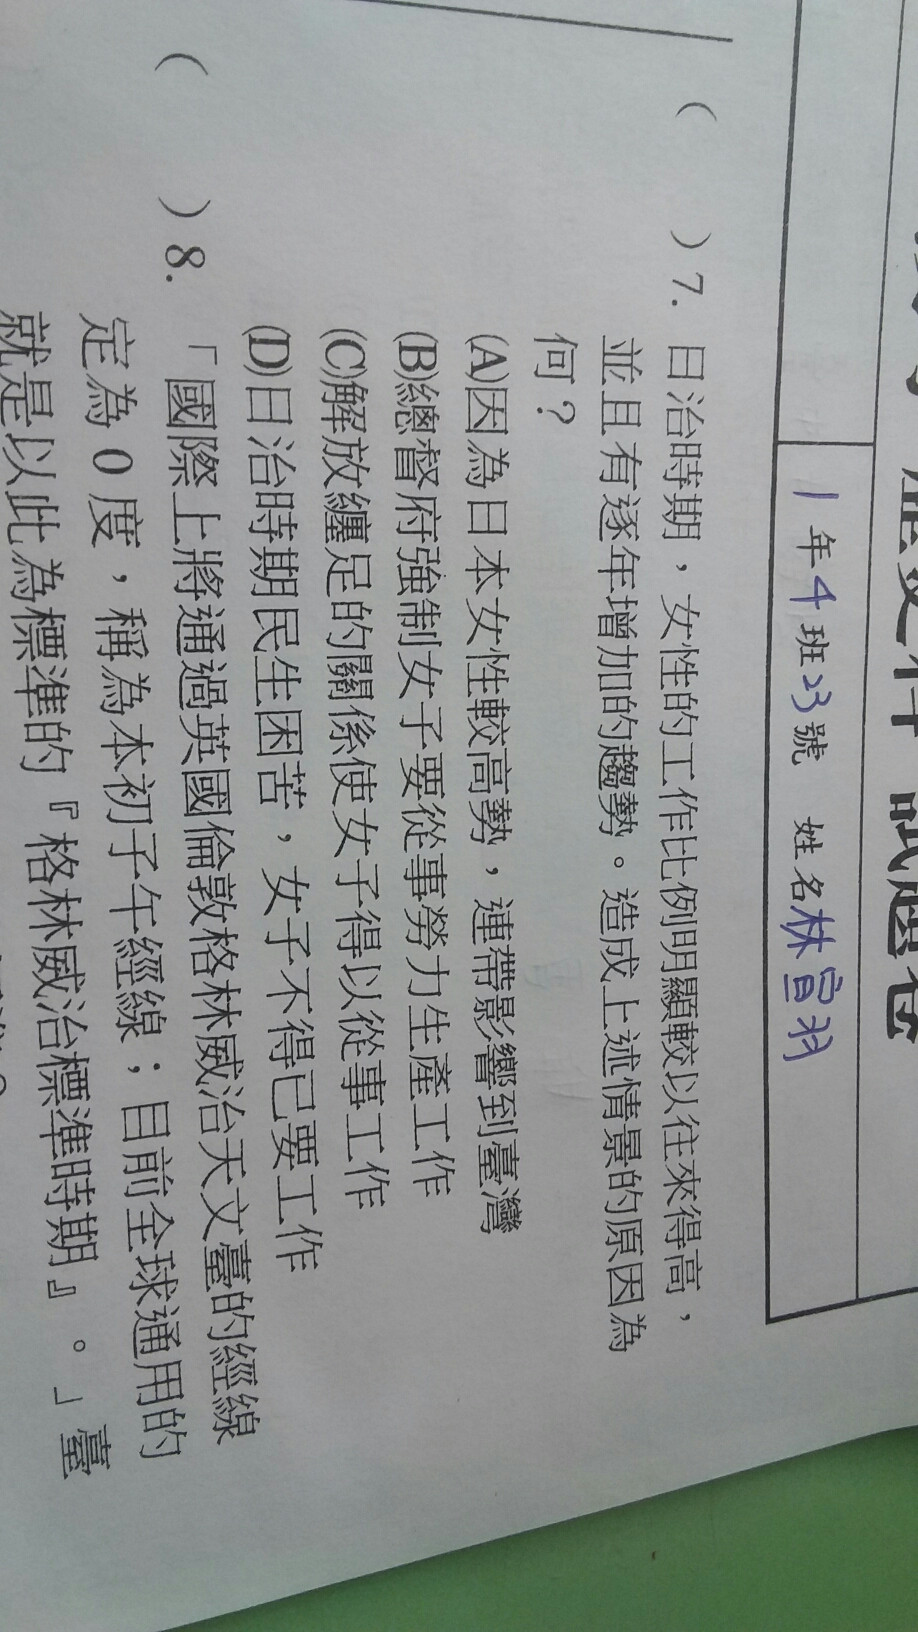 歷史科 試題卷
1年4班23號 姓名林宣羽
( )7. 日治時期，女性的工作比例明顯較以往來得高，
並且有逐年增加的趨勢。造成上述情景的原因為
何？
(A)因為日本女性較高勢，連帶影響到臺灣
(B)總督府強制女子要從事勞力生產工作
(C)解放纏足的關係使女子得以從事工作
(D)日治時期民生困苦，女子不得已要工作
( )8. 「國際上將通過英國倫敦格林威治天文臺的經線
定為0度，稱為本初子午經線；目前全球通用的
就是以此為標準的『格林威治標準時期』。」臺